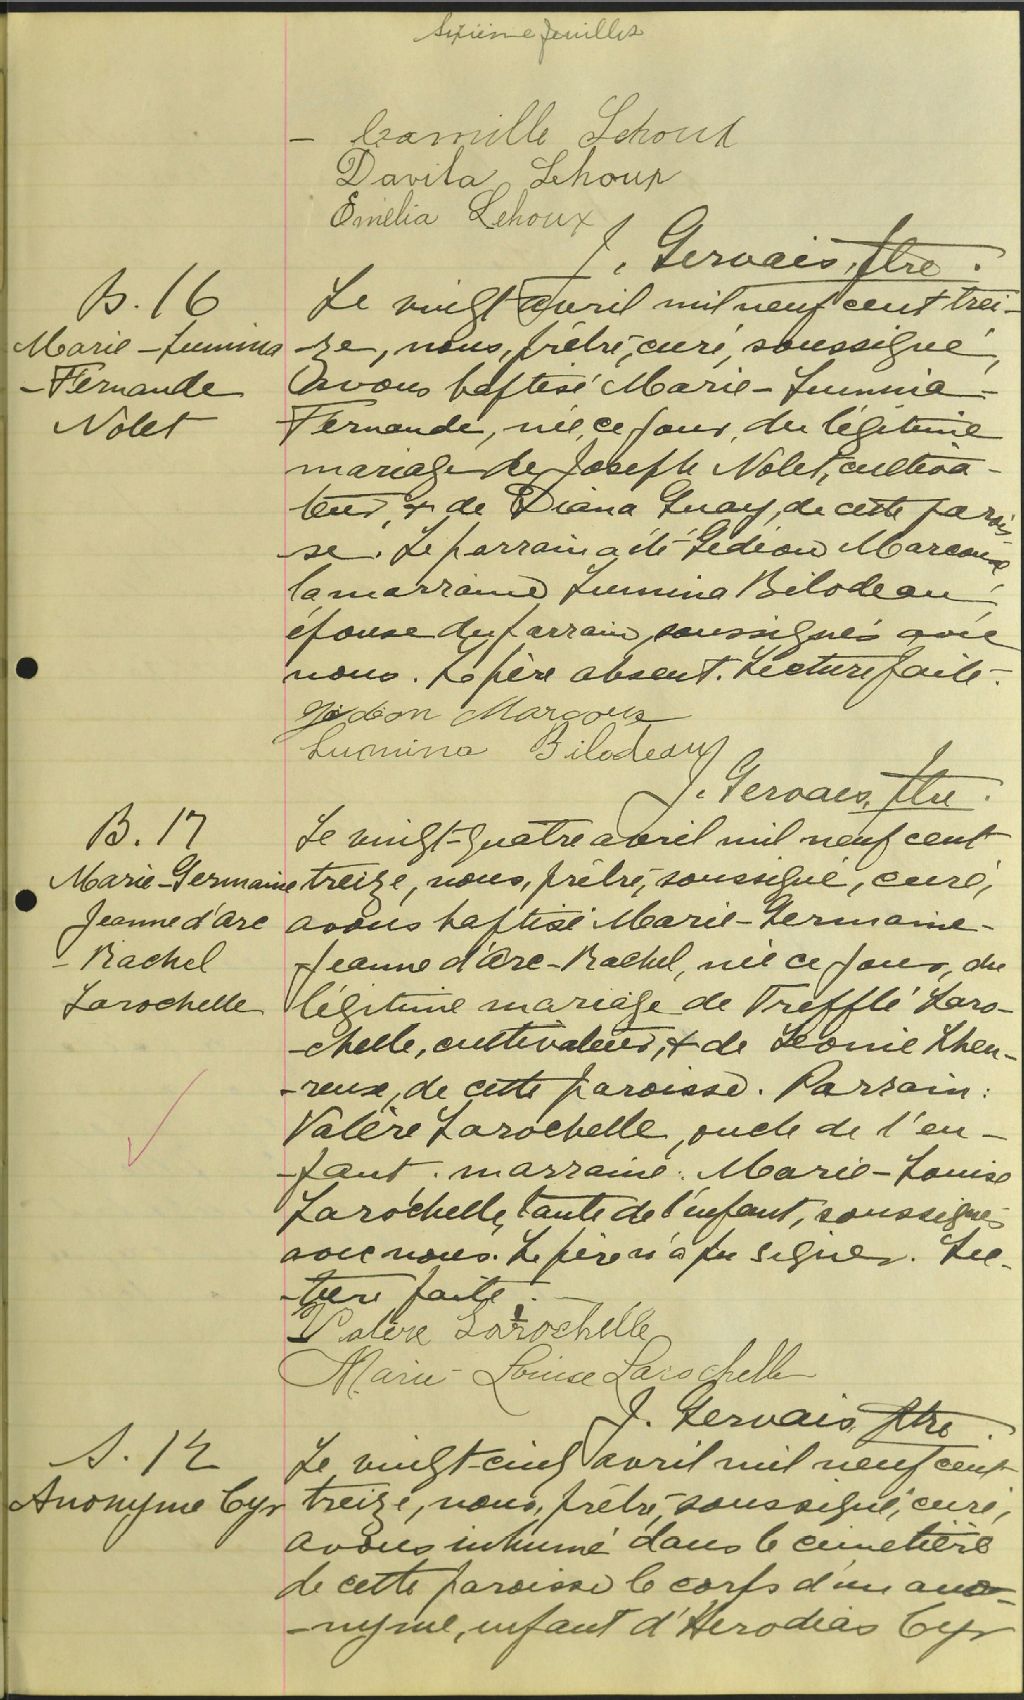 Sixième feuillet
- Camille Lehoux
Davila Lehoux
Emélia Lehoux
J. Gervais, ptre.
B. 16
Marie-Lumina
-Fernande
Nolet
Le vingt avril mil neuf cent trei-
-ze, nous, prêtre, curé, soussigné,
Avons baptisé Marie-Lumina-
Fernande, née, ce jour, du légitime
mariage de Joseph Nolet, cultiva-
teur, & de Diana Guay, de cette parois-
se. Le parrain a été Gédéon Marcoux
la marraine Lumina Bilodeau,
épouse du parrain, soussignés avec
nous. Le père absent. Lecture faite.
Gédéon Marcoux
Lumina Bilodeau
J. Gervais, ptre.
B. 17
Marie-Germaine
Jeanne d'Arc
- Rachel
Larochelle
Le vingt-quatre avril mil neuf cent
treize, nous, prêtre, soussigné, curé,
avons baptisé Marie-Germaine-
Jeanne d'Arc-Rachel, née ce jour, du
légitime mariage de Trefflé Laro-
-chelle, cultivateur, & de Léonie Lheu-
-reux, de cette paroisse. Parrain:
Valère Larochelle, oncle de l'en-
-fant. marraine: Marie-Louise
Larochelle, tante de l'enfant, soussignés
avec nous. Le père n'a pu signer. Lec-
-ture faite.
Valère Larochelle
Marie-Louise Larochelle
J. Gervais, ptre.
S. 12
Anonyme Cyr
Le vingt-cinq avril mil neuf cent
treize, nous, prêtre, soussigné, curé,
avons inhumé dans le cimetière
de cette paroisse le corps d'un ano-
-nyme, enfant d'Herodias Cyr